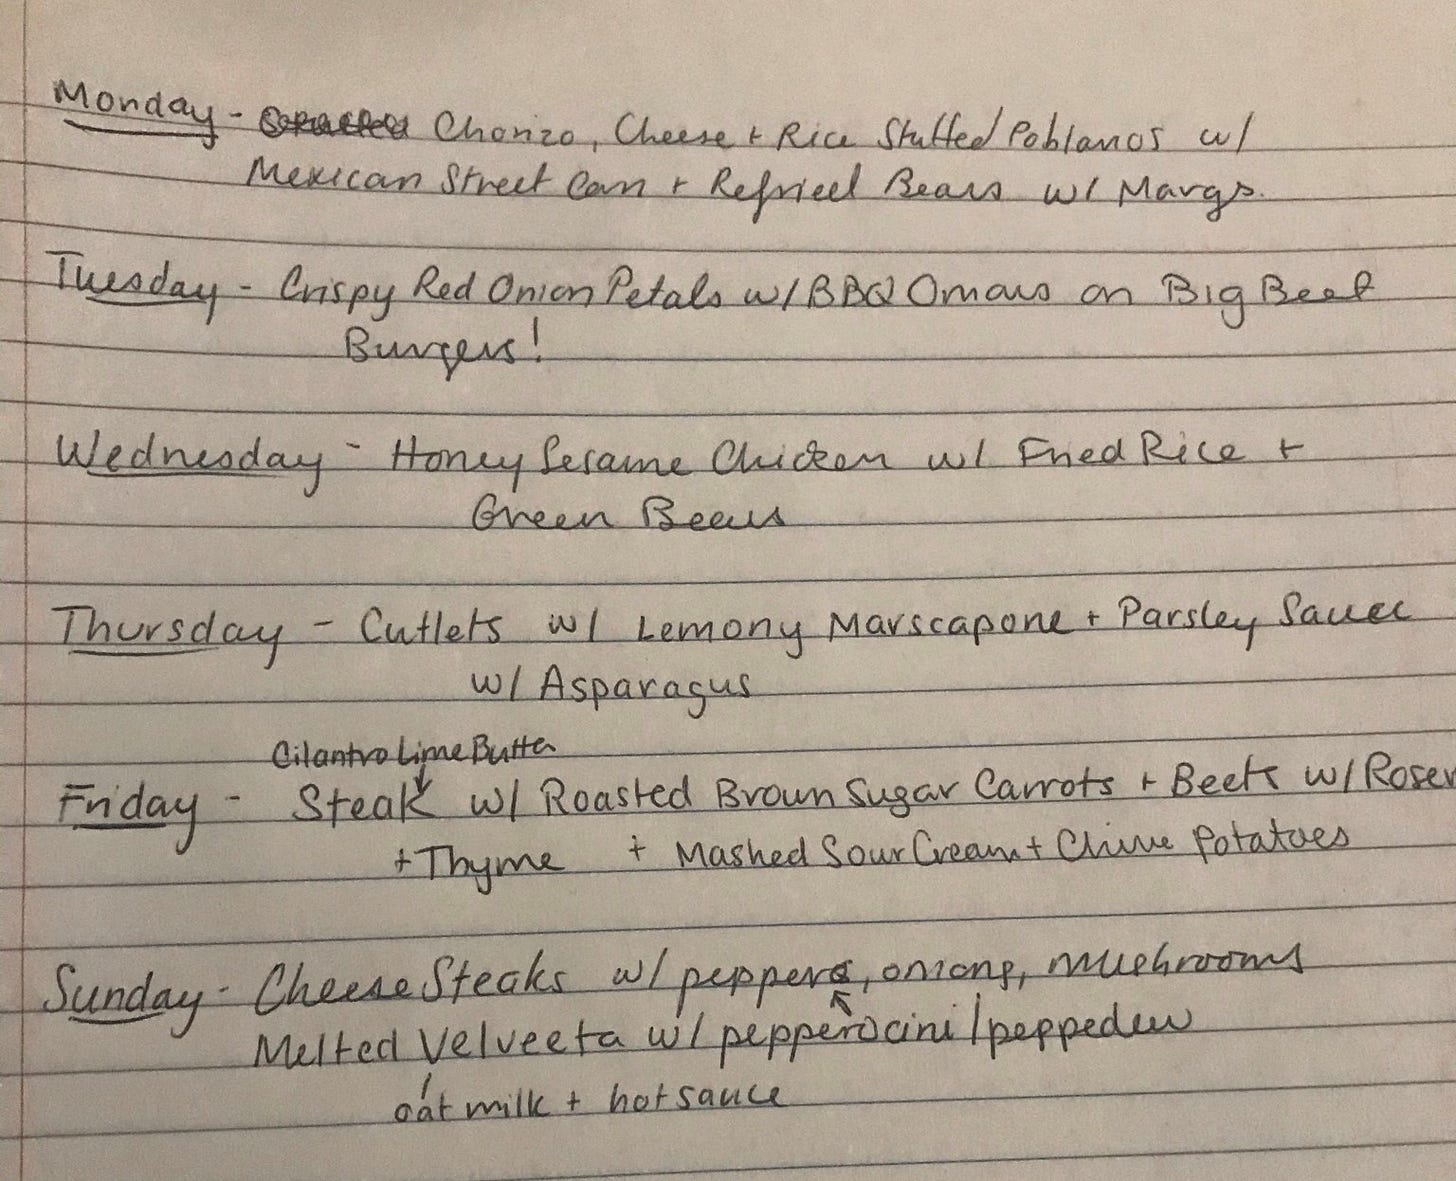 Monday - Chorizo, Cheese + Rice Stuffed Poblanos w/
Mexican Street Corn + Refried Beans w/ Margs.
Tuesday - Crispy Red Onion Petals w/ BBQ Omaus on Big Beef
Burgers!
Wednesday - Honey Sesame Chicken w/ Fried Rice +
Green Beans
Thursday - Cutlets w/ Lemony Marscapone + Parsley Sauce
w/ Asparagus
Cilantro Lime Butter
Friday - Steak w/ Roasted Brown Sugar Carrots + Beets w/ Rosem
+ Thyme + Mashed Sour Cream + Chive Potatoes
Sunday - Cheese Steaks w/ peppers, onions, mushrooms
Melted Velveeta w/ pepperocini / peppedew
oat milk + hot sauce